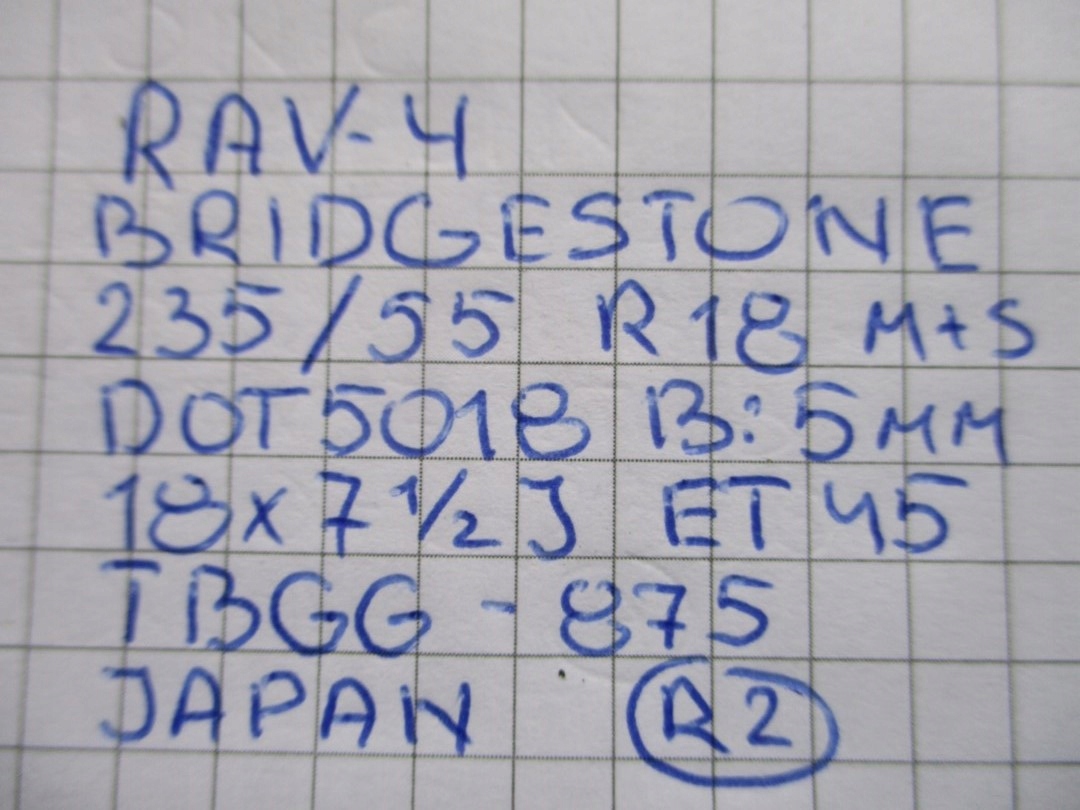 RAV-4
BRIDGESTONE
235/55 R18 M+S
DOT5018 B: 5MM
18x7 1/2 J ET 45
TBGG - 875
JAPAN R2